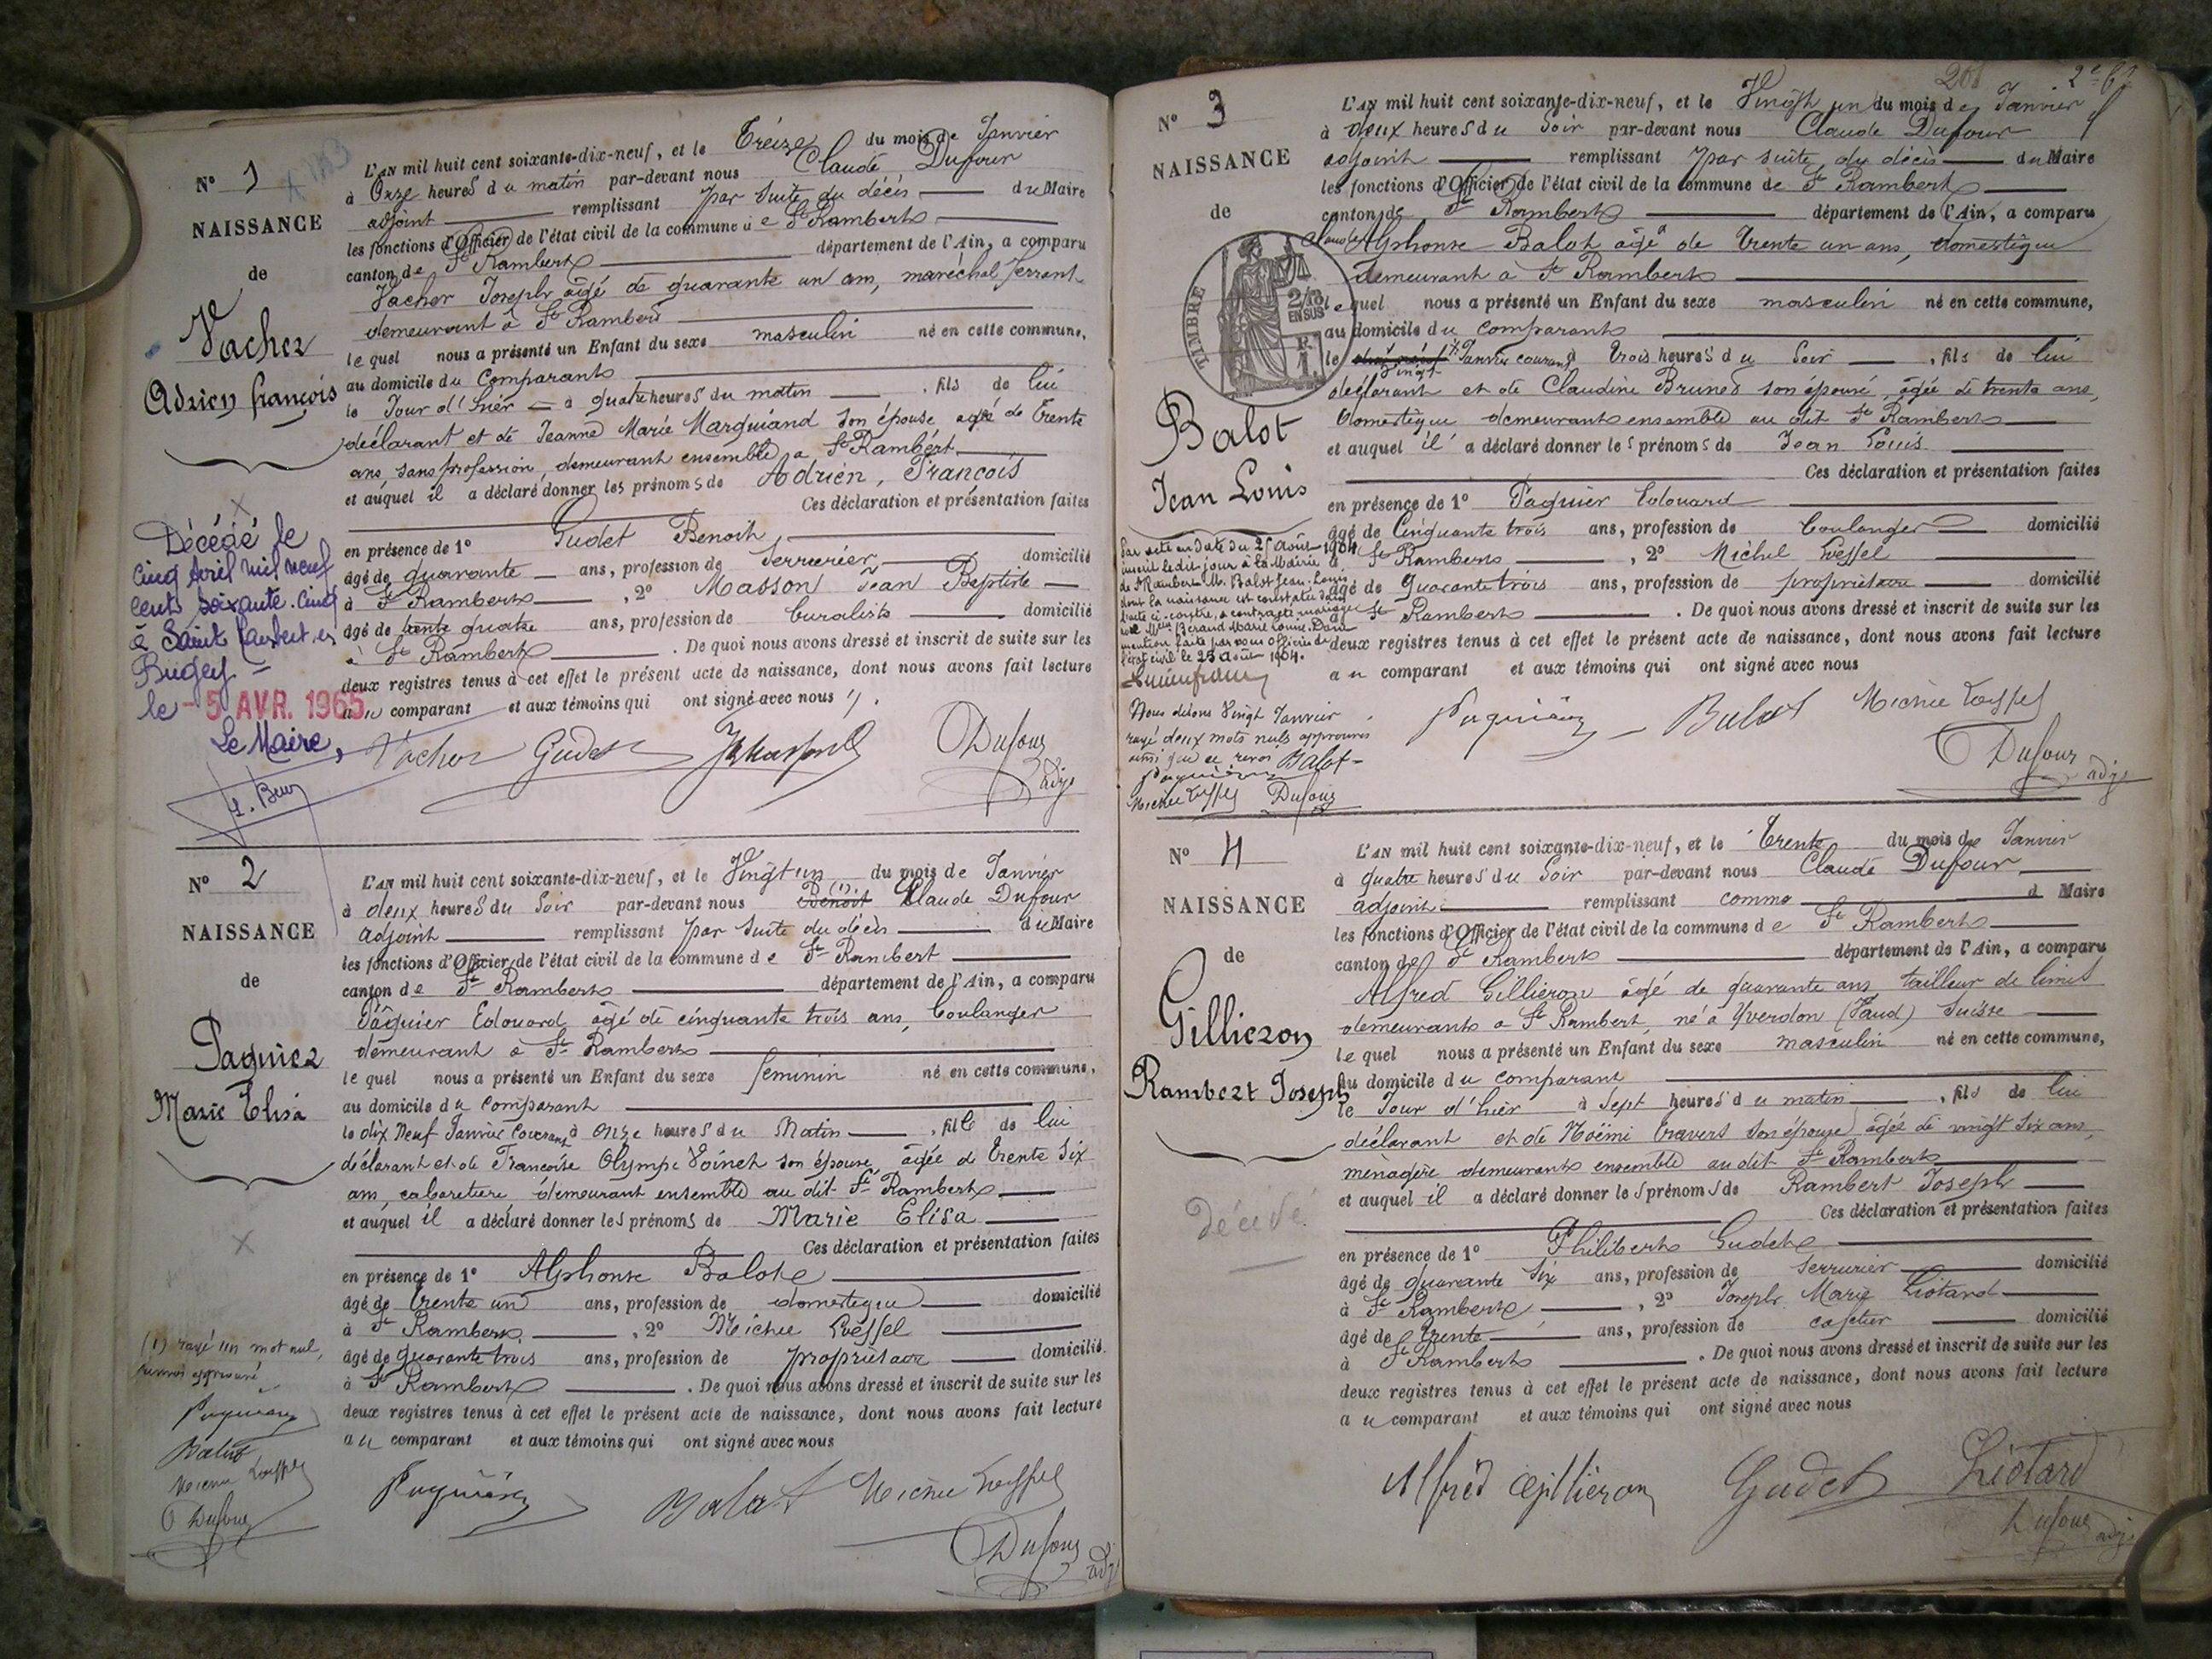 N° 1
NAISSANCE
de
Vacher
Adrien françois
L'AN mil huit cent soixante-dix-neuf, et le Treize du mois de Janvier
à Onze heures du matin par-devant nous Claude Dufour
adjoint remplissant par suite du décès du Maire
les fonctions d'Officier de l'état civil de la commune de St Rambert
canton de St Rambert département de l'Ain, a comparu
Vacher Joseph âgé de quarante un ans, maréchal ferrant
demeurant à St Rambert
lequel nous a présenté un Enfant du sexe masculin né en cette commune,
au domicile du Comparant
le Jour d'hier à quatre heures du matin, fils de lui
déclarant et de Jeanne Marie Marguiand son épouse agée de trente
ans, sans profession, demeurant ensemble a St Rambert
et auquel il a déclaré donner les prénoms de Adrien, François
Ces déclaration et présentation faites
en présence de 1° Gudet Benoit
âgé de quarante ans, profession de Serrurier domicilié
à St Rambert, 2° Masson Jean Baptiste
âgé de trente quatre ans, profession de buraliste domicilié
à St Rambert. De quoi nous avons dressé et inscrit de suite sur les
deux registres tenus à cet effet le présent acte de naissance, dont nous avons fait lecture
au comparant et aux témoins qui ont signé avec nous
Vacher Gudet JB Masson Dufour adj
Décédé le
cinq Avril mil neuf
cent soixante-cinq
à Saint Rambert en
Bugey
le -5 AVR. 1965
Le Maire,
N° 2
NAISSANCE
de
Paquier
Marie Elisa
L'AN mil huit cent soixante-dix-neuf, et le Vingt un du mois de Janvier
à deux heures du Soir par-devant nous Benoit (1) Claude Dufour
adjoint remplissant par suite du décès du Maire
les fonctions d'Officier de l'état civil de la commune de St Rambert
canton de St Rambert département de l'Ain, a comparu
Pâquier Edouard âgé de cinquante trois ans, boulanger
demeurant à St Rambert
lequel nous a présenté un Enfant du sexe féminin né en cette commune,
au domicile du comparant
le dix Neuf Janvier Courant à onze heures du Matin, fille de lui
déclarant et de Françoise Olympe Voinet son épouse, âgée de trente six
ans, cabaretière demeurant ensemble au dit St Rambert
et auquel il a déclaré donner les prénoms de Marie Elisa
Ces déclaration et présentation faites
en présence de 1° Alphonse Balot
âgé de trente un ans, profession de domestique domicilié
à St Rambert, 2° Michel Loeffel
âgé de quarante trois ans, profession de propriétaire domicilié
à St Rambert. De quoi nous avons dressé et inscrit de suite sur les
deux registres tenus à cet effet le présent acte de naissance, dont nous avons fait lecture
au comparant et aux témoins qui ont signé avec nous
(1) rayé un mot nul,
Paquier
Balot
Dufour
Paquier Balot Dufour adj
N° 3
NAISSANCE
de
Balot
Jean Louis
TIMBRE
2/10
EN SUS
L'AN mil huit cent soixante-dix-neuf, et le Vingt un du mois de Janvier
à deux heures du Soir par-devant nous Claude Dufour
adjoint remplissant par suite du décès du Maire
les fonctions d'Officier de l'état civil de la commune de St Rambert
canton de St Rambert département de l'Ain, a comparu
Claude Alphonse Balot âgé de trente un ans, domestique
demeurant à St Rambert
lequel nous a présenté un Enfant du sexe masculin né en cette commune,
au domicile du comparant
le vingt Janvier courant à trois heures du Soir, fils de lui
déclarant et de Claudine Brunet son épouse, âgée de trente ans,
domestique demeurant ensemble au dit St Rambert
et auquel il a déclaré donner les prénoms de Jean Louis
Ces déclaration et présentation faites
en présence de 1° Paquier Edouard
âgé de Cinquante trois ans, profession de boulanger domicilié
à St Rambert, 2° Michel Loeffel
âgé de quarante trois ans, profession de propriétaire domicilié
à St Rambert. De quoi nous avons dressé et inscrit de suite sur les
deux registres tenus à cet effet le présent acte de naissance, dont nous avons fait lecture
au comparant et aux témoins qui ont signé avec nous
Paquier Balot Dufour adj
Par acte en date du 25 Août 1904
inscrit le dit jour à la Mairie de
St Rambert M. Balot Jean-Louis
dont la naissance est constatée dans
l'acte ci-contre, a contracté mariage
avec Béraud Marie Louise. Dont
mention faite par nous officier de
l'état civil le 25 Août 1904.
Nous disons Vingt Janvier
rayé deux mots nuls approuvés
ainsi que ce renvoi Balot
Dufour
N° 4
NAISSANCE
de
Gillieron
Rambert Joseph
Décédé
L'AN mil huit cent soixante-dix-neuf, et le Trente du mois de Janvier
à quatre heures du Soir par-devant nous Claude Dufour
adjoint remplissant comme d Maire
les fonctions d'Officier de l'état civil de la commune de St Rambert
canton de St Rambert département de l'Ain, a comparu
Alfred Gillieron âgé de quarante ans tailleur de limes
demeurant a St Rambert, né à Yverdon (Vaud) Suisse
lequel nous a présenté un Enfant du sexe masculin né en cette commune,
au domicile du comparant
le Jour d'hier à Sept heures du matin, fils de lui
déclarant et de Noëmi Travers son épouse âgée de vingt six ans,
ménagère demeurant ensemble audit St Rambert
et auquel il a déclaré donner les prénoms de Rambert Joseph
Ces déclaration et présentation faites
en présence de 1° Philibert Gudet
âgé de quarante Six ans, profession de Serrurier domicilié
à St Rambert, 2° Joseph Marie Liotard
âgé de trente ans, profession de cafetier domicilié
à St Rambert. De quoi nous avons dressé et inscrit de suite sur les
deux registres tenus à cet effet le présent acte de naissance, dont nous avons fait lecture
au comparant et aux témoins qui ont signé avec nous
Alfred Gillieron Gudet Liotard
Dufour adj